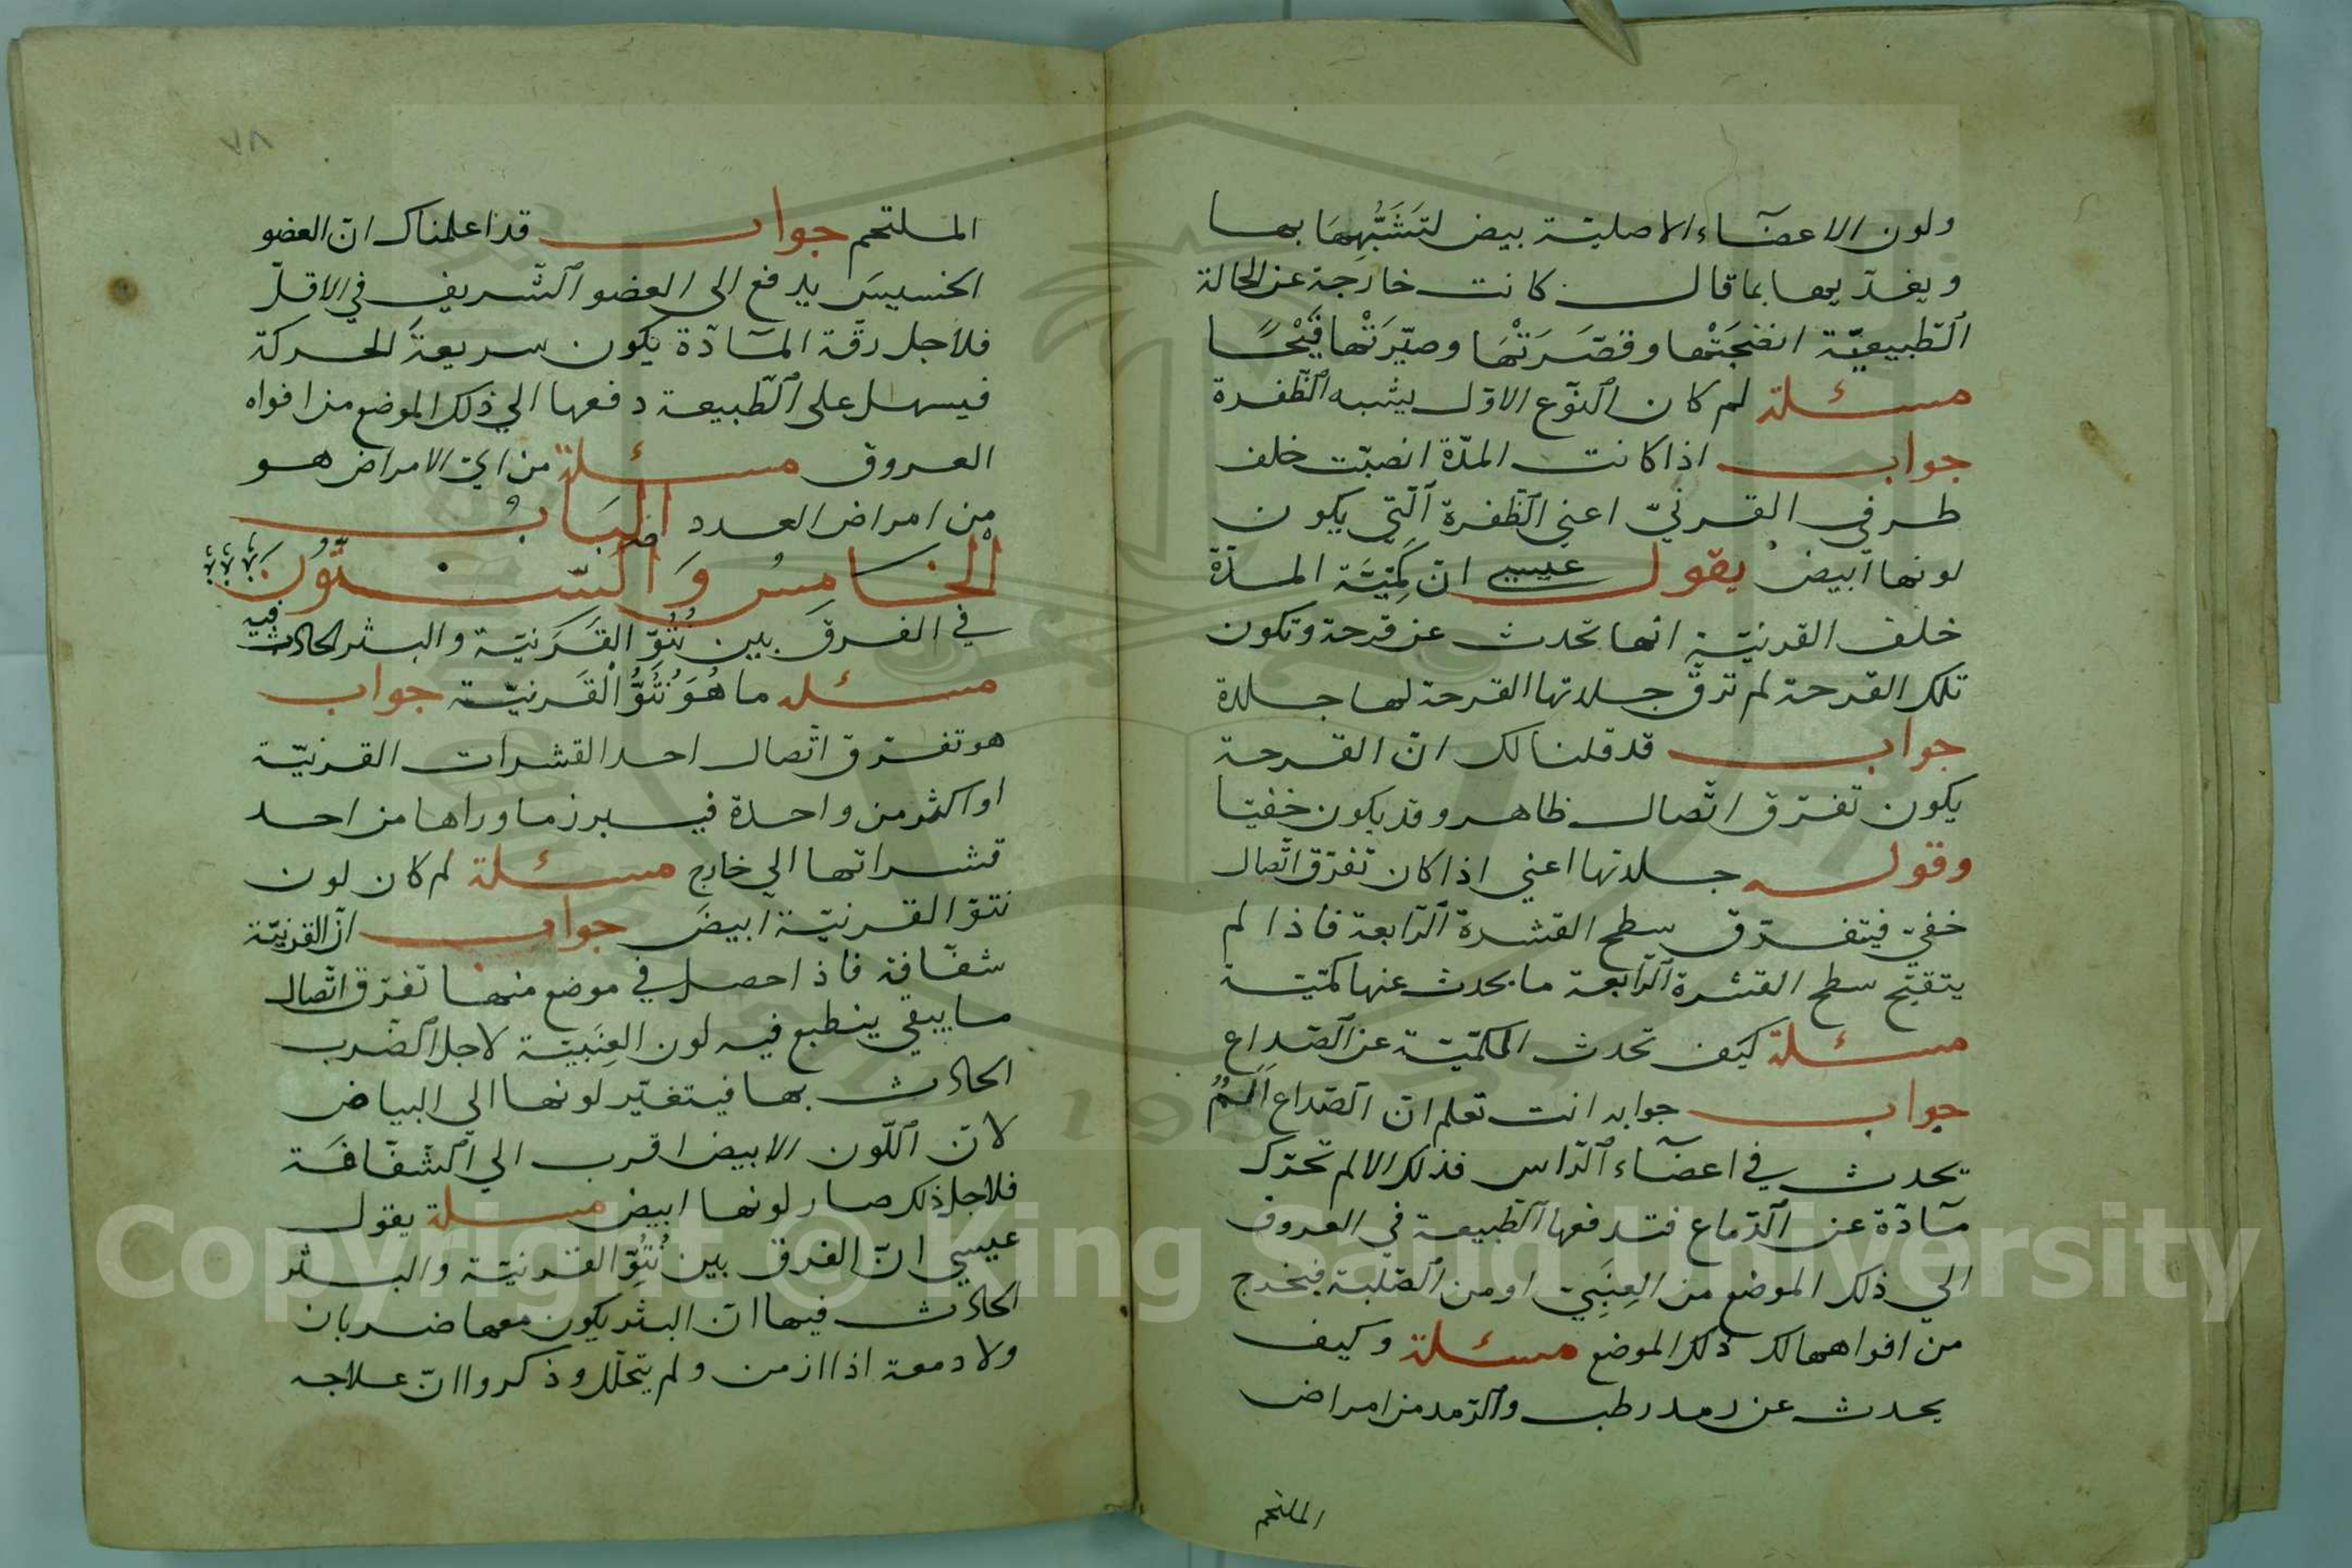 ولون الاعضاء الاصلية بيض لتشبهها بها
ويغذيها بما قال كانت خارجة عن الحالة
الطبيعيّة انضجتها وقصّرتها وصيّرتها قيحًا
مسئلة لم كان النوع الاوّل يشبه الظفرة
جواب اذا كانت المدّة انصبّت خلف
طرفي القرنيّ اعني الظفرة الّتي يكون
لونها ابيض يقول عيسى انّ كميّة المدّة
خلف القرنيّة انها تحدث عن قرحة وتكون
تلك القرحة لم ترقّ جلدتها القرحة لها جلدة
جواب قد قلنا لك انّ القرحة
يكون تفرّق اتّصال ظاهر وقد يكون خفيّا
وقوله جلدتها اعني اذا كان تفرّق اتّصال
خفيّ فيتفرّق سطح القشرة الرّابعة فاذا لم
يتقيّح سطح القشرة الرّابعة ما يحدث عنها كميّة
مسئلة كيف تحدث الكميّة عن الصّداع
جواب جوابه انت تعلم انّ الصّداع المٌ
يحدث في اعضاء الرّاس فذلك الالم تحرّك
مادّة عن الدّماغ فتدفعها الطّبيعة في العروق
الي ذلك الموضع من العِنَبِيّ او من الصّلبة فيخرج
من افواهها لك ذلك الموضع مسئلة وكيف
يحدث عن رمد رطب والرّمد من امراض
الملتحم
٧٨
الملتحم جواب قد اعلمناك انّ العضو
الخسيس يدفع الى العضو الشّريف في الاقلّ
فلاجل رقّة المادّة يكون سريعة الحركة
فيسهل على الطّبيعة دفعها الي ذلك الموضع من افواه
العروق مسئلة من ايّ الامراض هو
من امراض العدد الباب
الخامس والستّون
في الفرق بين نتوّ القرنيّة والبثر الحادث فيه
مسئله ما هو نتوّ القرنيّة جواب
هو تفرّق اتّصال احد القشرات القرنيّة
او اكثر من واحدة فيبرز ما وراها من احد
قشراتها الي خارج مسئلة لم كان لون
نتوّ القرنيّة ابيض جواب انّ القرنيّة
شفّافة فاذا حصل في موضع منها تفرّق اتّصال
ما يبقي ينطبع فيه لون العِنَبيّة لاجل الضّرب
الحادث بها فيتغيّر لونها الى البياض
لانّ اللّون الابيض اقرب الي الشفّافة
فلاجل ذلك صار لونها ابيض مسئلة يقول
عيسي انّ الفرق بين نتوّ القرنيّة والبثر
الحادث فيها انّ البثر يكون معها ضربان
ولا دمعة اذا ازمن ولم يتحلّل وذكروا انّ علاجه
Copyright © King Saud University
1957